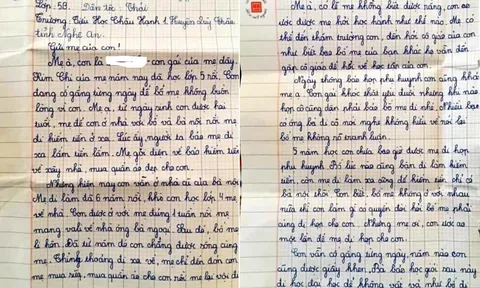 Lớp: 5B. Dân tộc: Thái
Trường: Tiểu Học Châu Hạnh 1. Huyện Quỳ Châu
tỉnh Nghệ An.
Gửi mẹ của con!
Mẹ ạ, con là con gái của mẹ đây.
Kim Chi của mẹ năm nay đã học lớp 5 rồi. Con
đang cố gắng từng ngày để bố mẹ không buồn
lòng vì con. Mẹ ạ, từ ngày sinh con được hai
tuổi, mẹ để con ở nhà với bố và bà nội nên mẹ
đi kiếm tiền ở xa. Lúc ấy, người ta bảo mẹ đi
xa lắm tiền lắm. Mẹ gửi điện về bảo kiếm tiền
về xây nhà, mua quần áo đẹp cho con.
Nhưng hiện nay con vẫn ở nhà cũ của bà nội.
Mẹ đi làm đã 6 năm rồi, khi con học lớp 4 mẹ
về nhà. Con được ở với mẹ đúng 1 tuần rồi mẹ
mang vali về nhà ông bà ngoại. Sau đó, bố mẹ
li hôn. Đã từ năm đó con chẳng được sống cùng
mẹ. Thỉnh thoảng đi xa về, mẹ chỉ đến đón con
mẹ mua sữa, mua quần áo cho con rồi mẹ lại vội đi
Mẹ ạ, có lẽ mẹ không biết được rằng, con ao
ước được mẹ hỏi học hành như thế nào. Mẹ có
thể đến thăm trường con, đến gặp cô giáo của con
như biết bao bố mẹ của bạn khác họ vẫn đến
gặp cô giáo để hỏi về học tập của con.
Ngày thông báo họp phụ huynh con cũng khát
mẹ ạ. Con gái khóc thật yếu đuối nhưng khi nào
họp cô cũng dặn phải bảo bố mẹ đi nhé. Nhiều bạn
có ông bà đi cô nói nghe không hiểu về nói lại
bố mẹ không rõ tranh luận.
5 năm học con chưa bao giờ được mẹ đi họp
phụ huynh. Bố lúc nào cũng bận đi làm kiếm
tiền, còn mẹ đi làm xa cũng để kiếm tiền, chỉ có
bà nội thôi. Con biết, bố mẹ không ở với nhau
nữa thì con làm gì có quyền đòi hỏi bố mẹ phải
cùng đi họp cho con. Nhưng mẹ ơi, con ước ao
một lần để mẹ đi họp cho con.
Con vẫn cố gắng từng ngày, năm nào con
cũng được giấy khen. Bà bảo học giỏi sau này
đi học đại học để không vất vả như bố đi